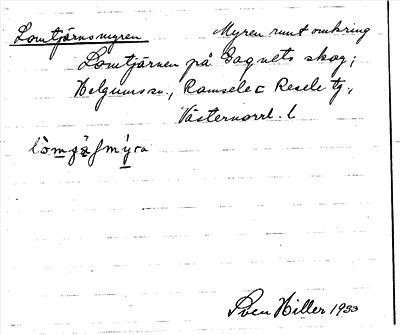 Lomtjärnsmyren Myren runt omkring
Lomtjärnen på Gagnets skog;
Helgums sn., Ramsele o Resele tg.,
Västernorrl. l
Sven Hiller 1933